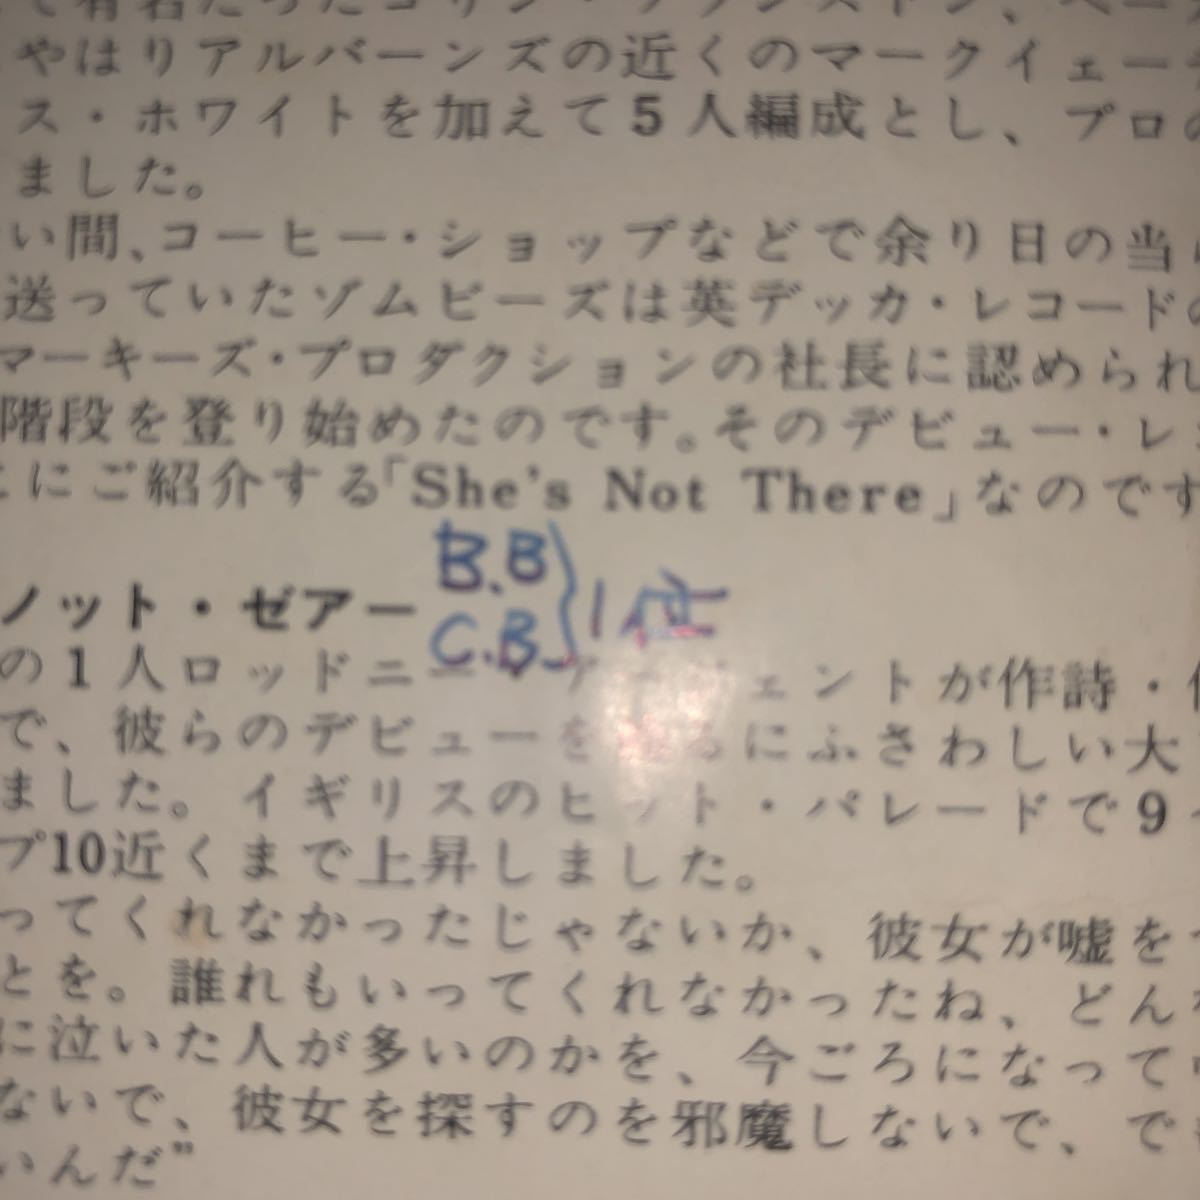 て有名だったコリン・ブランストン、ベー
やはりアルバーンズの近くのマークイェー
ス・ホワイトを加えて5人編成とし、プロの
ました。
い間、コーヒー・ショップなどで余り日の当
送っていたゾムビーズは英デッカ・レコードの
マーキーズ・プロダクションの社長に認められ
階段を登り始めたのです。そのデビュー・レ
にご紹介する「She's Not There」なのです
B.B
C.B } 1位
ノット・ゼアー
の1人ロッドニー・アージェントが作詩・
で、彼らのデビューを にふさわしい大
ました。イギリスのヒット・パレードで9
プ10近くまで上昇しました。
ってくれなかったじゃないか、彼女が嘘を
とを。誰れもいってくれなかったね、どん
に泣いた人が多いのかを、今ごろになって
ないで、彼女を探すのを邪魔しないで、で
いんだ”